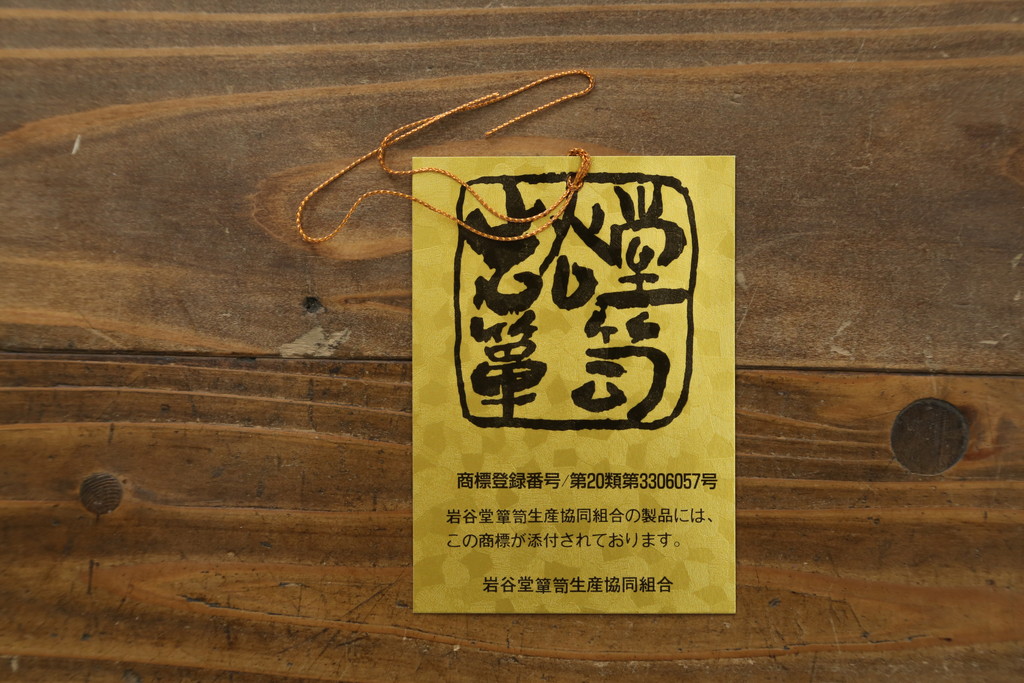 岩谷堂
簞笥
商標登録番号/第20類第3306057号
岩谷堂簞笥生産協同組合の製品には、
この商標が添付されております。
岩谷堂簞笥生産協同組合